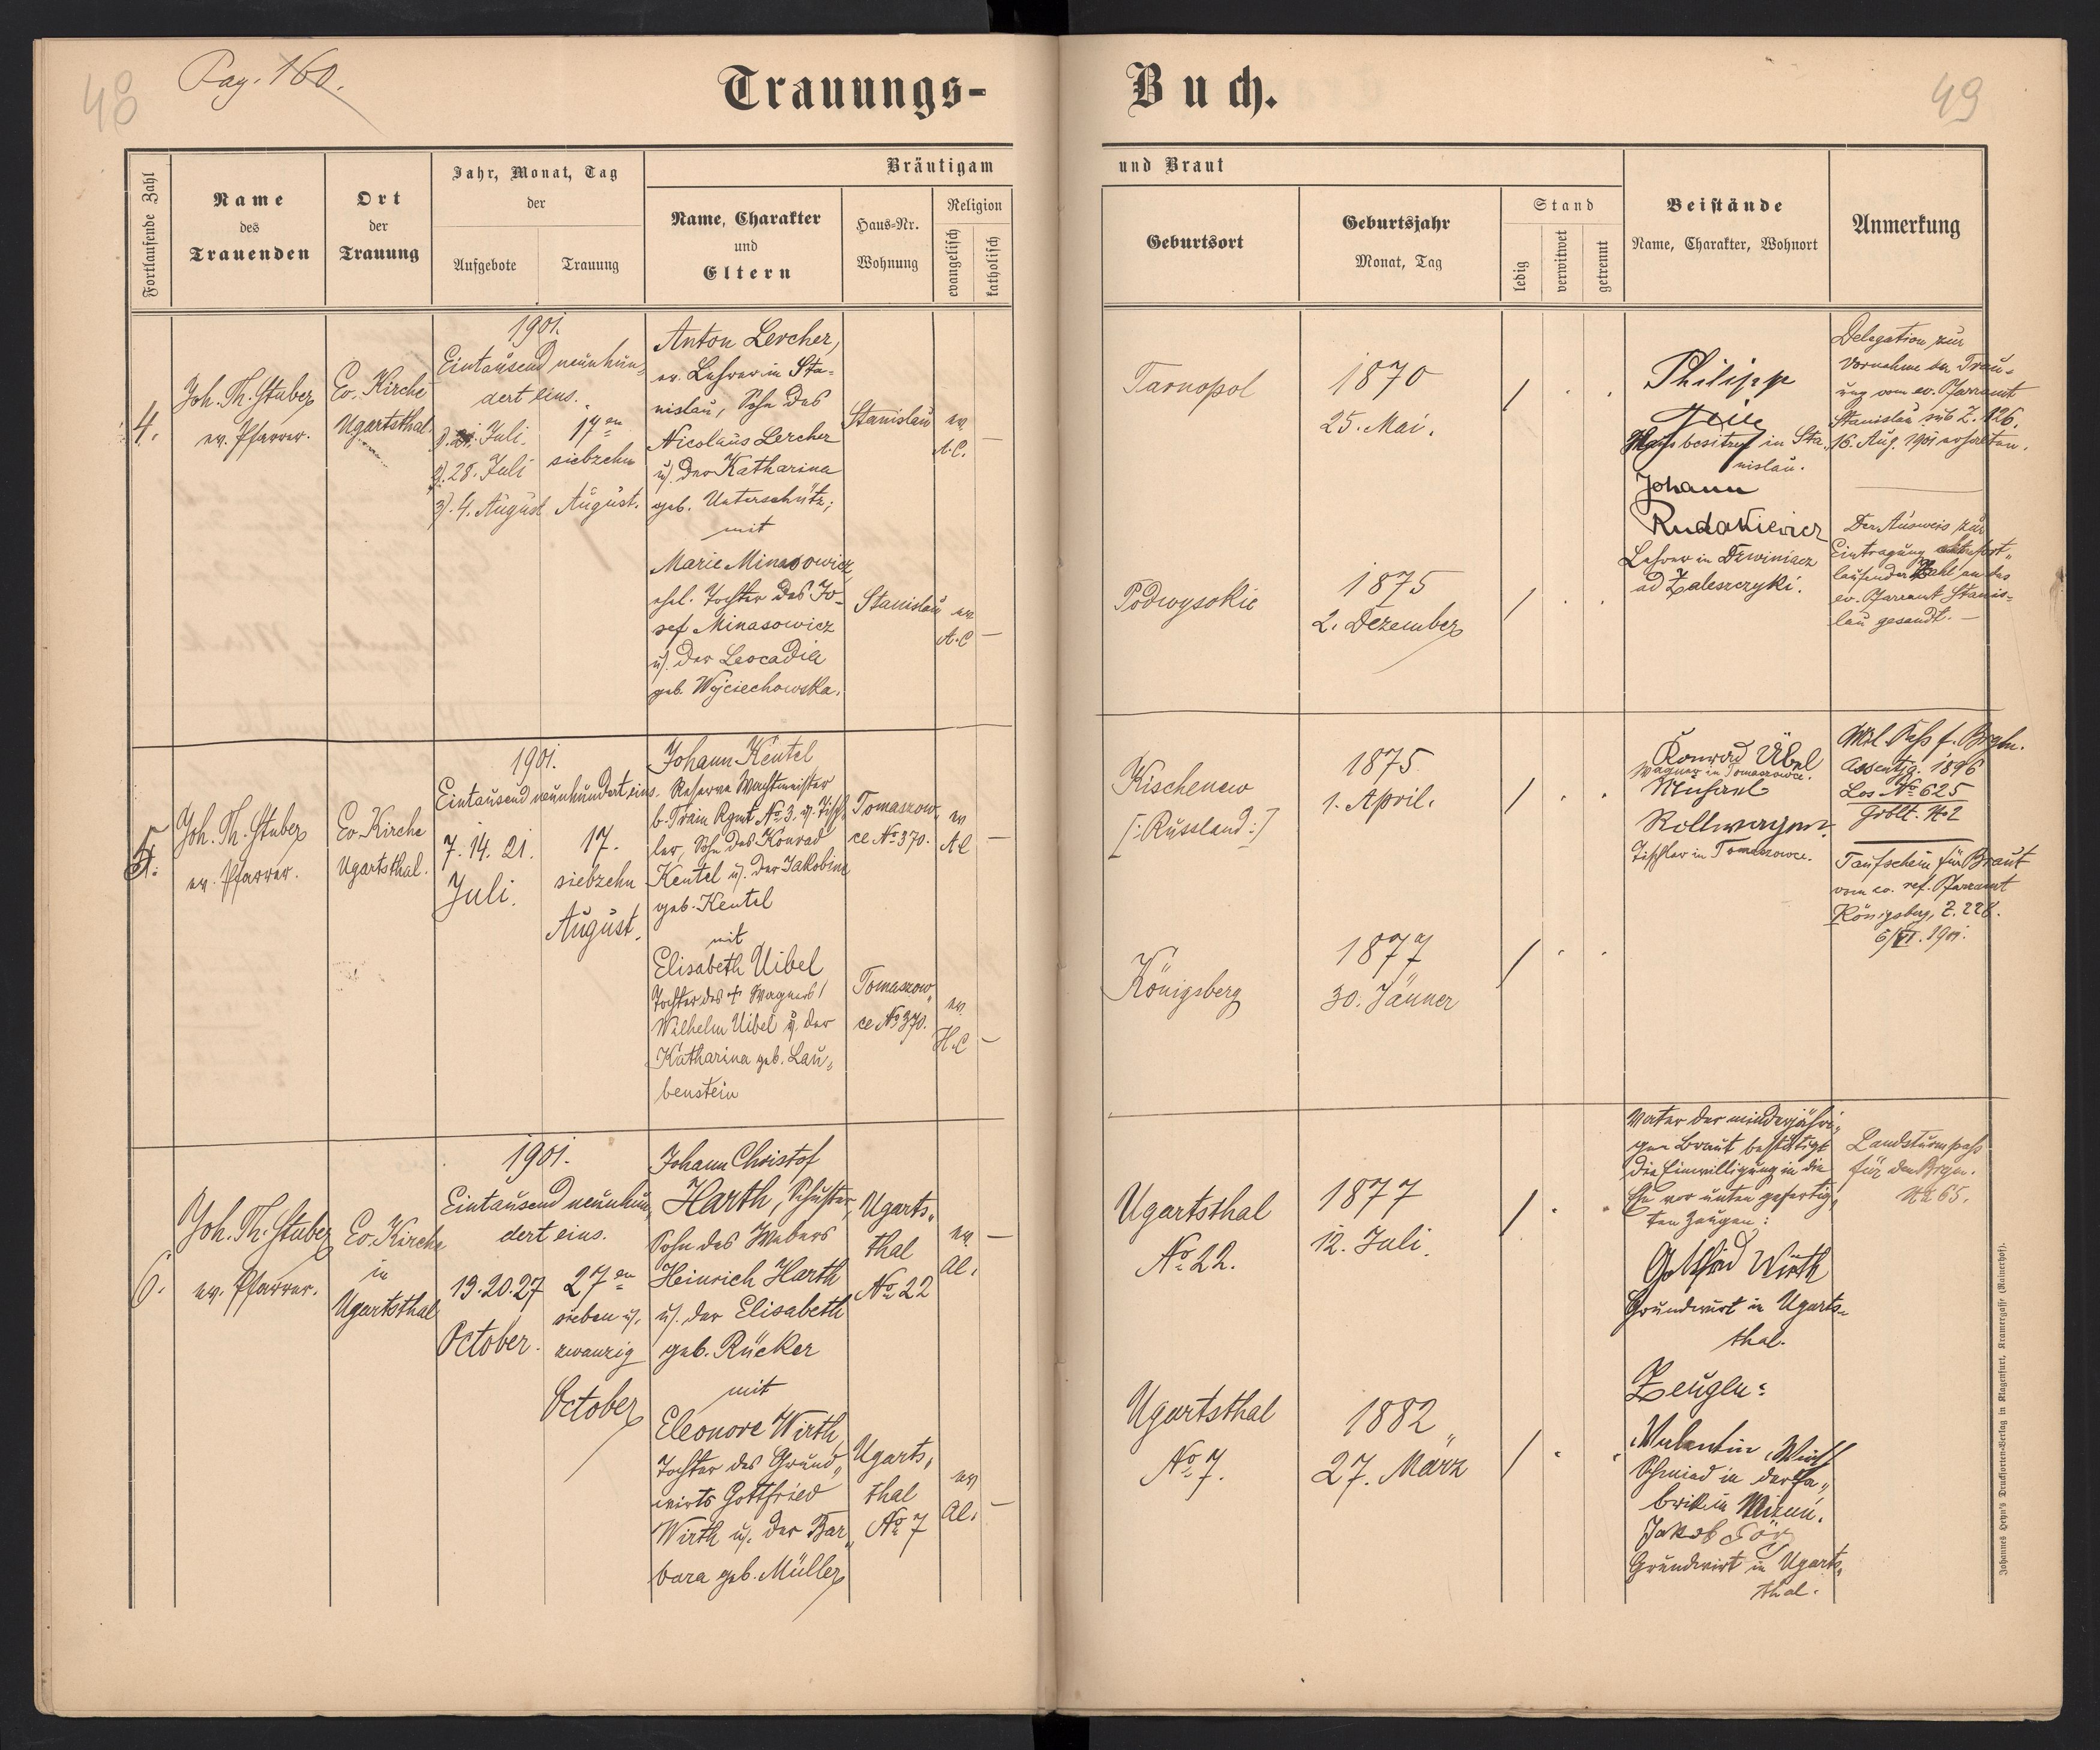 48
Pag. 160.
Trauungs-
Buch.
49
Fortlaufende Zahl
Name
des
Trauenden
Ort
der
Trauung
Jahr, Monat, Tag
der
Aufgebote
Trauung
Bräutigam
Name, Charakter
und
Eltern
Haus-Nr.
Wohnung
Religion
evangelisch
katholisch
und Braut
Geburtsort
Geburtsjahr
Monat, Tag
Stand
ledig
verwitwet
getrennt
Beistände
Name, Charakter, Wohnort
Anmerkung
4.
Joh. Th. Stuber
ev. Pfarrer.
Ev. Kirche
Ugartsthal.
1901.
Eintausend neunhun-
dert eins.
1). 21. Juli.
2). 28. Juli
3). 4. August
17en
siebzehn
August.
Anton Lercher,
ev. Lehrer in Sta-
nislau, Sohn des
Nicolaus Lercher
u. der Katharina
geb. Unterschütz;
mit
Marie Minasowicz
ehel. Tochter des Jo-
sef Minasowicz
u. der Leocadia
geb. Wojciechowska.
Stanislau
ev.
A.C.
—
Stanislau
ev.
A.C
—
Tarnopol
1870
25. Mai.
Podwysokie
1875
2. Dezember
Philipp
Hausbesitzer in Sta-
nislau.
Johann
Rudakiewicz
Lehrer in Drwiniacz
ad Zaleszczyki.
Delegation zur
Vornahme der Trau-
ung vom ev. Pfarramt
Stanislau sub Z. 426.
16. Aug. 1901 erhalten.
Der Ausweis zur
Eintragung fort-
laufender Zahl an das
ev. Pfarramt Stanis-
lau gesandt. —
5.
Joh. Th. Stuber
ev. Pfarrer.
Ev. Kirche
Ugartsthal.
1901.
Eintausend neunhundert eins.
7. 14. 21.
Juli.
17.
siebzehn
August.
Johann Keutel
Reserve Wachtmeister
b. Train Rgmt No. 3. u. Tisch-
ler, Sohn des Konrad
Keutel u. der Jakobine
geb. Keutel
mit
Elisabeth Uibel
Tochter des + Wagners
Wilhelm Uibel u. der
Katharina geb. Lau-
benstein
Tomaszow-
ce No 370.
ev
A.C
—
Tomaszow-
ce No 370.
ev.
H.C
—
Kischenew
[:Russland:]
1875
1. April.
Königsberg
1877
30. Jänner
Konrad Übel
Wagner in Tomaszowce.
Michael
Rollwagen.
Tischler in Tomaszowce.
Mil. Pass f. Brgm.
Assentjg. 1896
Los No 625
Grblt. No 2
Taufschein für Braut
vom ev. ref. Pfarramt
Königsberg, Z. 228.
6/VI. 1901.
6.
Joh. Th. Stuber
ev. Pfarrer.
Ev. Kirche
in
Ugartsthal
1901.
Eintausend neunhun-
dert eins.
13. 20. 27
October.
27en
sieben u.
zwanzig
October
Johann Christof
Harth, Schuster,
Sohn des Webers
Heinrich Harth
u. der Elisabeth
geb. Rücker
mit
Eleonore Wirth,
Tochter des Grund-
wirts Gottfried
Wirth u. der Bar-
bara geb. Müller
Ugarts-
thal
No 22
ev
A.C.
—
Ugarts-
thal
No 7
ev
A.C.
—
Ugartsthal
No 22.
1877
12. Juli.
Ugartsthal
No 7.
1882
27. März
Vater der minderjähri-
gen Braut bestätigt
die Einwilligung in die
Ehe vor unten gefertig-
ten Zeugen:
Gottfried Wirth
Grundwirt in Ugarts-
thal.
Zeugen:
Valentin Wirth
Schmied in der Fa-
brik in Mizun.
Jakob
Grundwirt in Ugarts-
thal.
Landsturmpass
für den Brgm.
No 65.
Johannes Heyn's Drucksorten-Verlag in Klagenfurt, Kramergasse (Rainerhof).